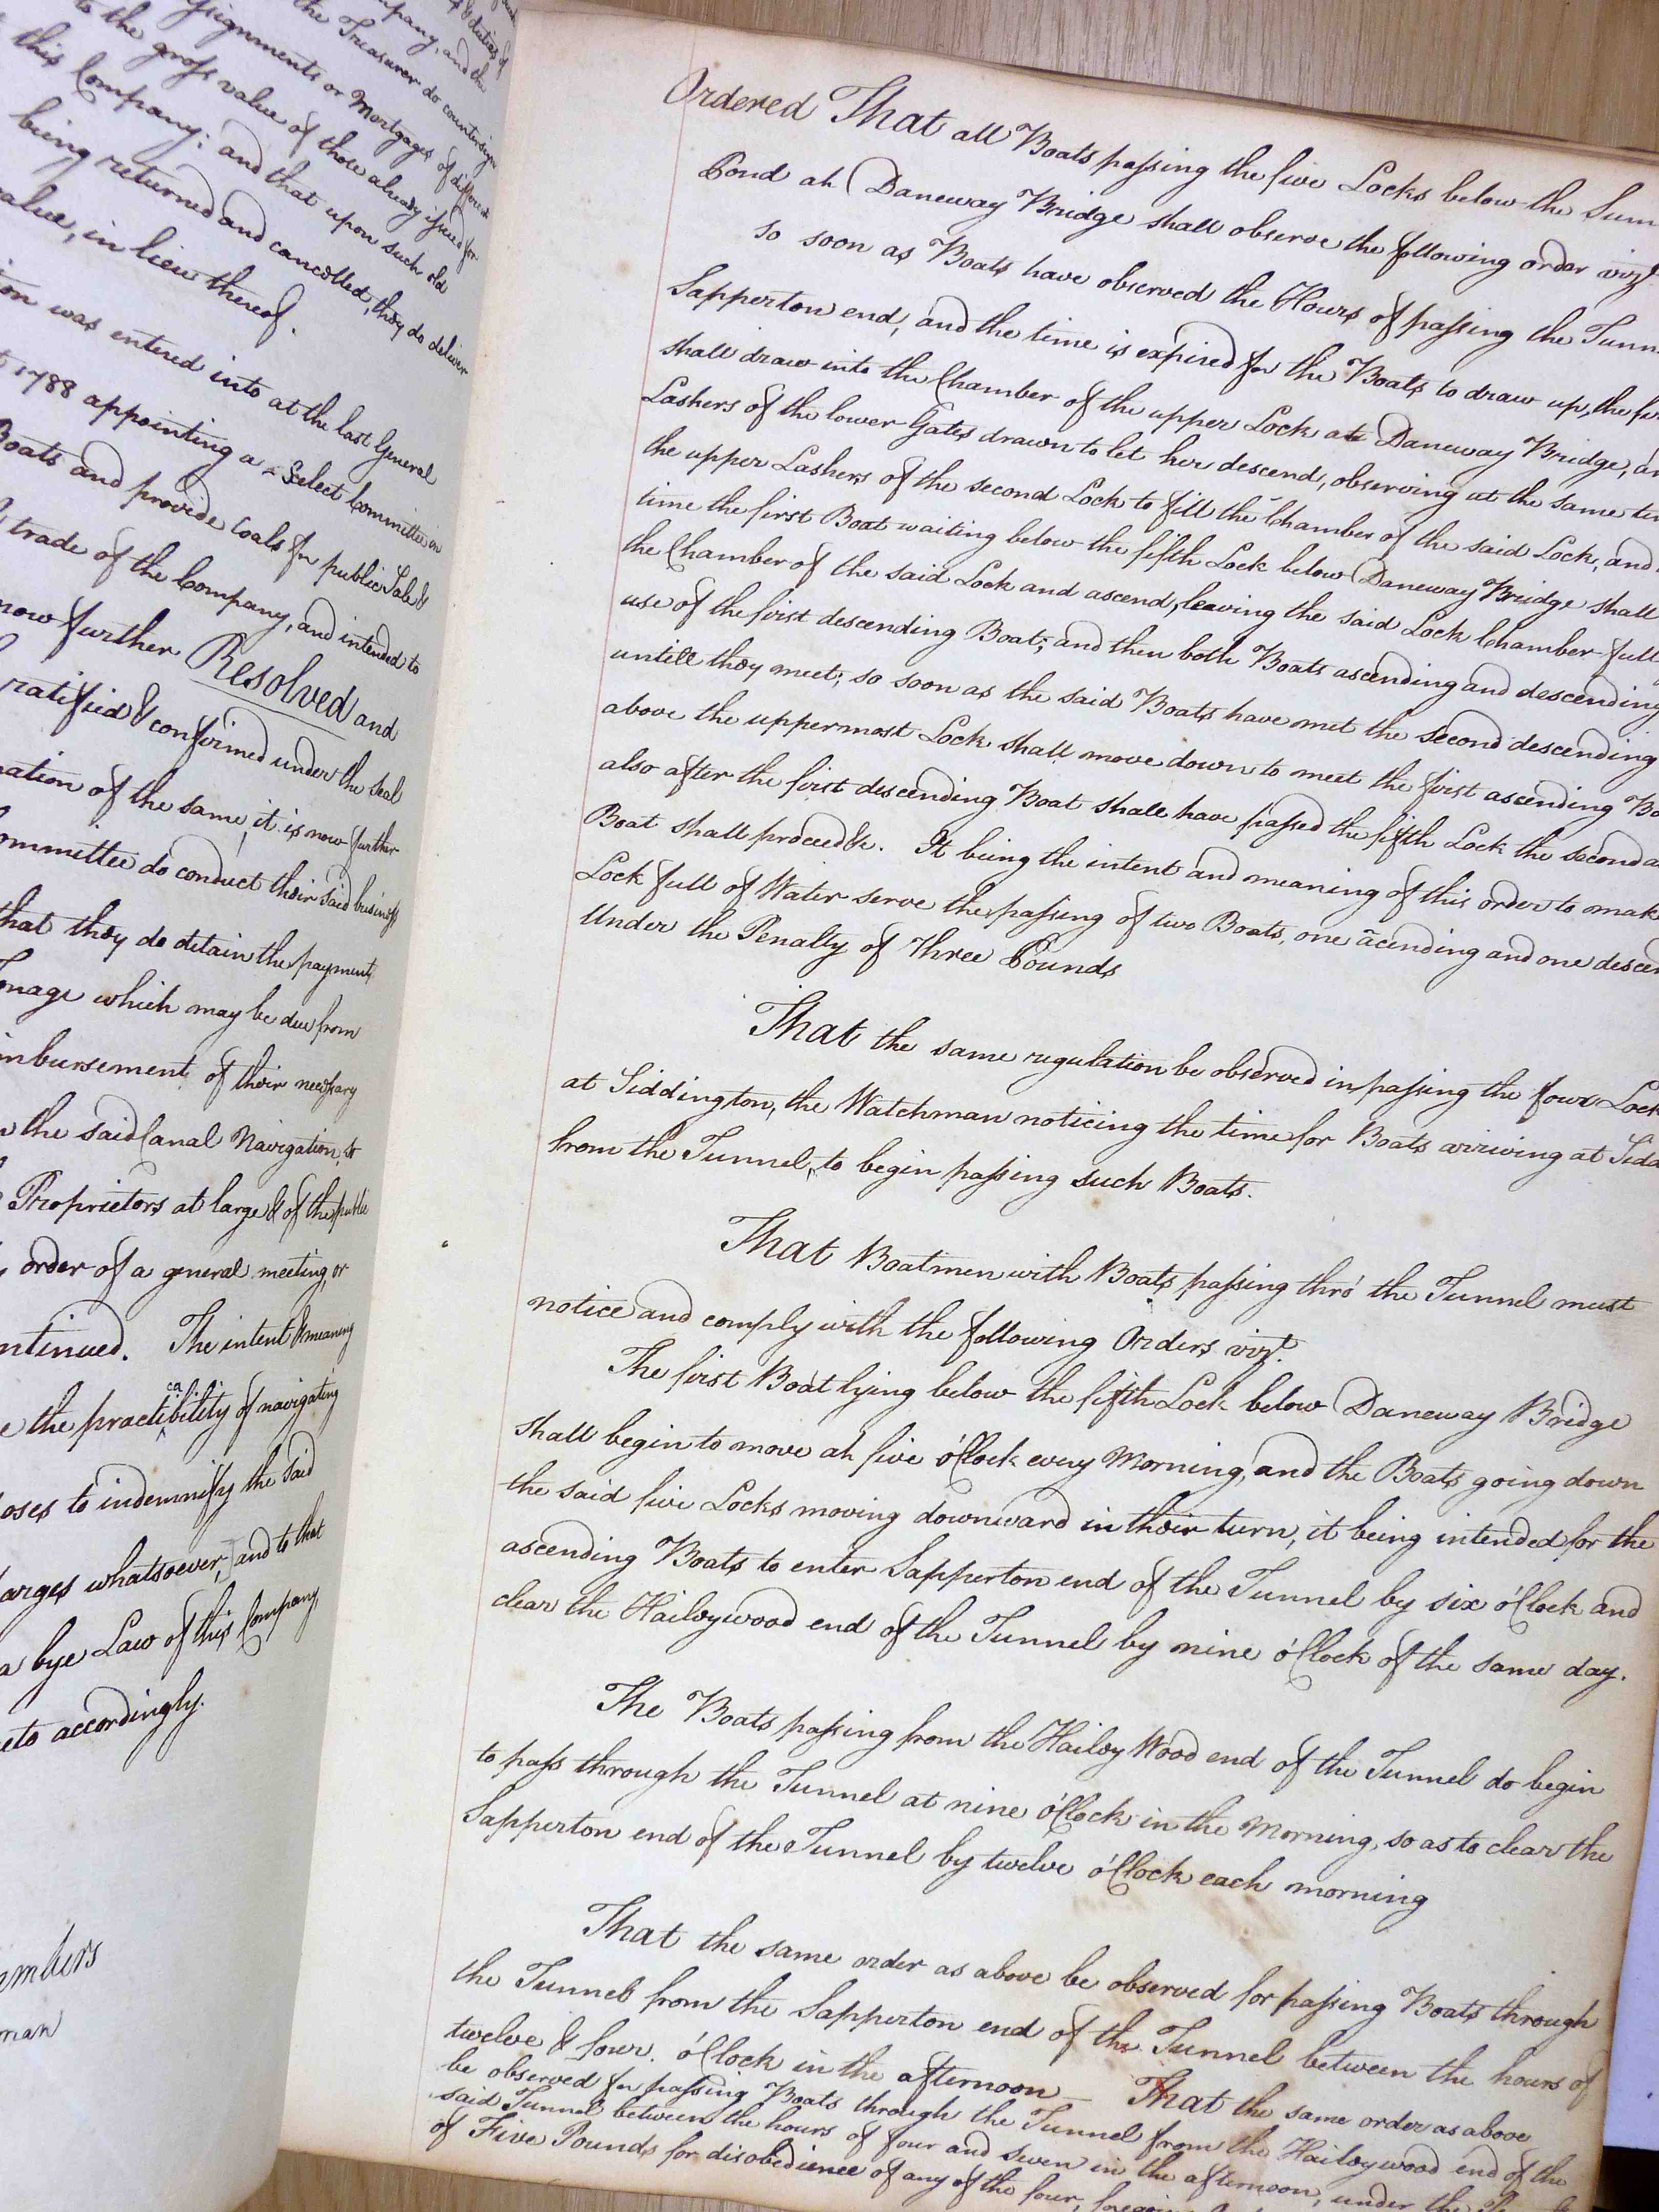 mpany, and the
the Treasurer do countersign
ssignments or Mortgages of different
to the gross value of those already issued for
this Company; and that upon such old
being returned and cancelled, they do deliver
value, in lieu thereof.
was entered into at the last General
1788 appointing a Select Committee on
Boats and provide Coals for public Sale &
trade of the Company, and intended to
now further Resolved and
ratified & confirmed under the Seal
ation of the same, it is now further
ommittee do conduct their said business
that they do detain the payment
onage which may be due from
inbursement of their necessary
the said Canal Navigation, to
Proprietors at large & of the public
order of a general meeting, or
ntinued. The intent & meaning
the practicability of navigating
oses to indemnify the said
arges whatsoever, and to that
a bye Law of this Company,
eto accordingly.
embers
man
Ordered That all Boats passing the five Locks below the Sum
Pond at Daneway Bridge shall observe the following order vizt.
so soon as Boats have observed the Hours of passing the Tunn
Sapperton end, and the time is expired for the Boats to draw up, the fir
shall draw into the Chamber of the upper Lock at Daneway Bridge, an
Lashers of the lower Gates drawn to let her descend, observing at the same tim
the upper Lashers of the second Lock to fill the Chamber of the said Lock, and
time the first Boat waiting below the fifth Lock below Daneway Bridge shall
the Chamber of the said Lock and ascend, leaving the said Lock Chamber full
use of the first descending Boat; and then both Boats ascending and descending
untill they meet; so soon as the said Boats have met the second descending
above the uppermost Lock shall move down to meet the first ascending Bo
also after the first descending Boat shall have passed the fifth Lock the second a
Boat shall proceed &c. It being the intent and meaning of this order to mak
Lock full of Water serve the passing of two Boats, one acending and one descen
Under the Penalty of Three Pounds
That the same regulation be observed in passing the four Lock
at Siddington, the Watchman noticing the time for Boats arriving at Sidd
from the Tunnel, to begin passing such Boats.
That Boatmen with Boats passing thro' the Tunnel must
notice and comply with the following Orders vizt.
The first Boat lying below the fifth Lock below Daneway Bridge
shall begin to move at five o'Clock every Morning, and the Boats going down
the said five Locks moving downward in their turn, it being intended for the
ascending Boats to enter Sapperton end of the Tunnel by six o'Clock and
clear the Haileywood end of the Tunnel by nine o'Clock of the same day.
The Boats passing from the Hailey Wood end of the Tunnel do begin
to pass through the Tunnel at nine o'Clock in the Morning, so as to clear the
Sapperton end of the Tunnel by twelve o'Clock each morning
That the same order as above be observed for passing Boats through
the Tunnel from the Sapperton end of the Tunnel between the hours of
twelve & four o'Clock in the afternoon — That the same order as above
be observed for passing Boats through the Tunnel from the Haileywood end of the
said Tunnel between the hours of four and seven in the afternoon, under the
of Five Pounds for disobedience of any of the four,